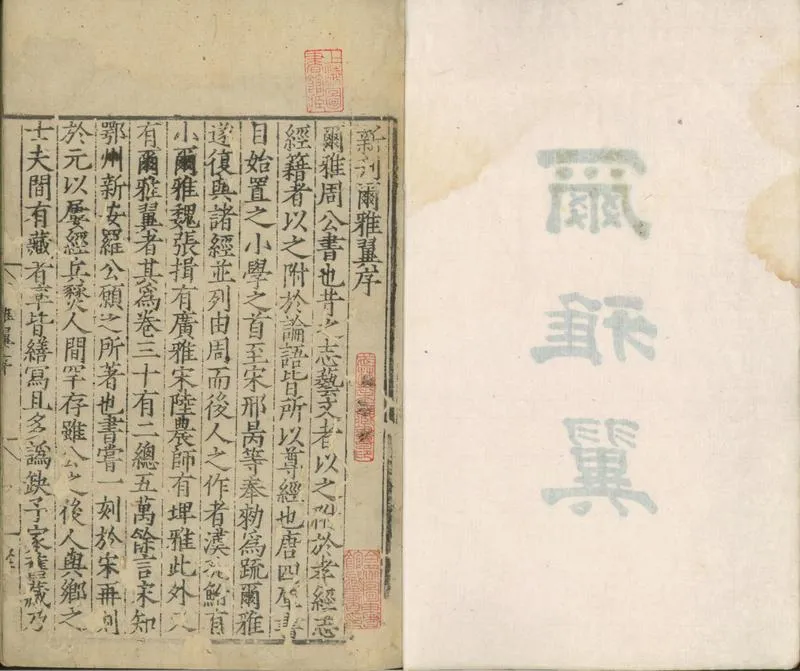 爾雅翼
新刊爾雅翼序
爾雅周公書也昔之志藝文者以之附於孝經志
經籍者以之附於論語皆所以尊經也唐四庫書
目始置之小學之首至宋邢昺等奉勑為疏爾雅
遂復與諸經並列由周而後人之作者漢孔鮒有
小爾雅魏張揖有廣雅宋陸農師有埤雅此外又
有爾雅翼者其為卷三十有二總五萬餘言宋知
鄂州新安羅公願之所著也書嘗一刻於宋再刻
於元以屢經兵燹人間罕存雖公之後人與鄉之
士夫間有藏者率皆繕寫且多譌缺予家舊藏乃
雅翼序